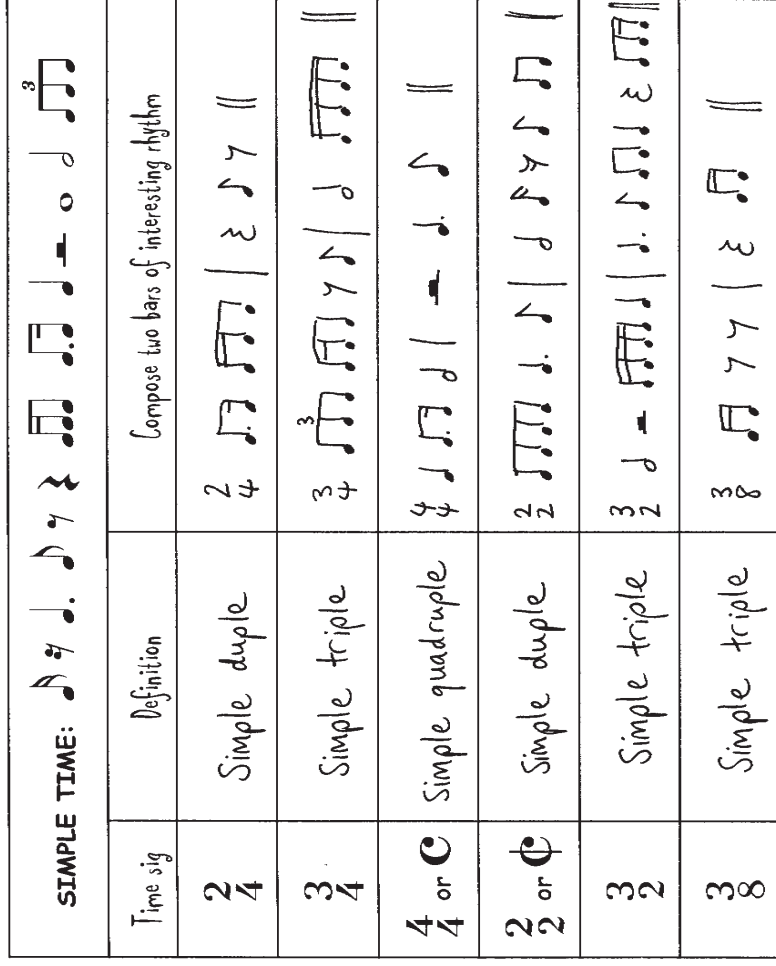 SIMPLE TIME: 3
Time sig Definition Compose two bars of interesting rhythm
2 4 Simple duple 2 4
3 4 Simple triple 3 4 3
4 4 or C Simple quadruple 4 4
2 2 or ¢ Simple duple 2 2
3 2 Simple triple 3 2
3 8 Simple triple 3 8